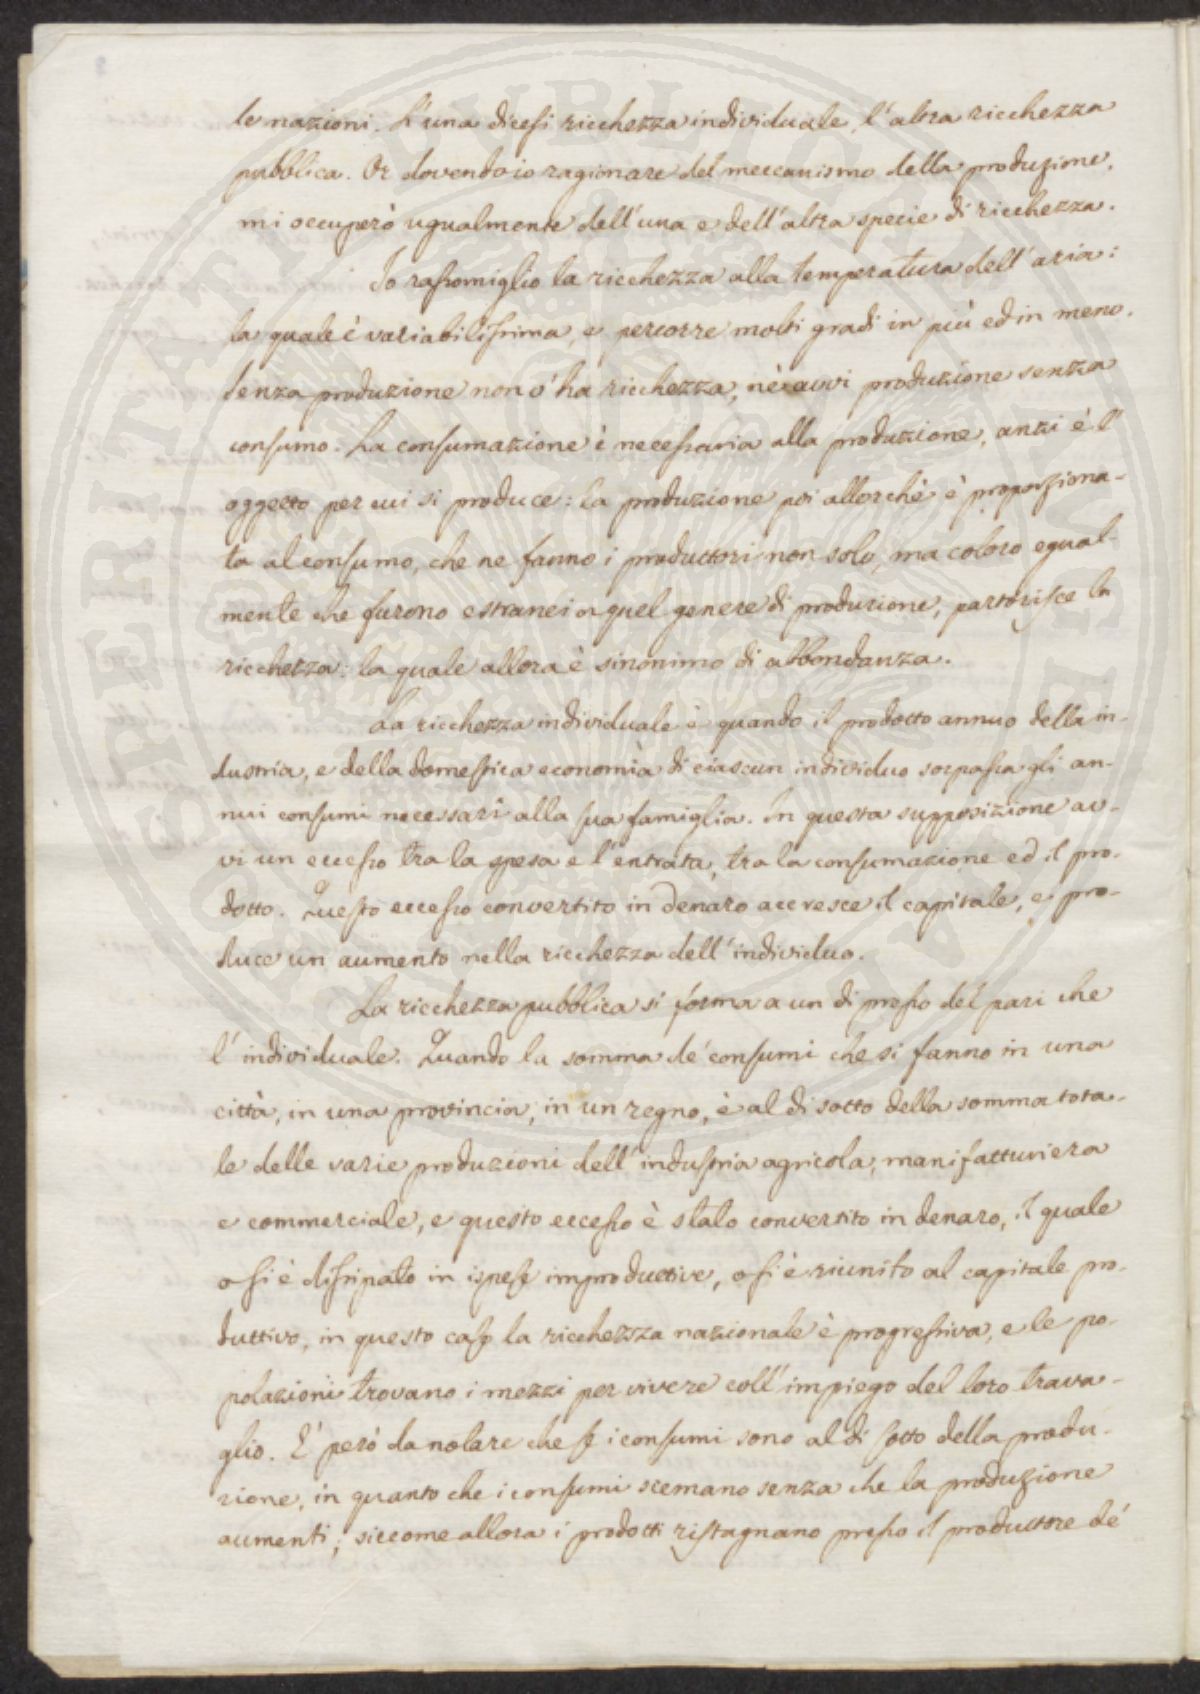 le nazioni. L'una dicesi ricchezza individuale, l'altra ricchezza
pubblica. Or dovendo io ragionare del meccanismo della produzione,
mi occuperò ugualmente dell'una e dell'altra specie di ricchezza.
Io rassomiglio la ricchezza alla temperatura dell'aria:
la quale è variabilissima, e percorre molti gradi in più ed in meno.
Senza produzione non v'ha ricchezza, nè avvi produzione senza
consumo. La consumazione è necessaria alla produzione, anzi è l'
oggetto per cui si produce: la produzione poi allorchè è proporziona-
ta al consumo, che ne fanno i produttori non solo, ma coloro egual-
mente che furono estranei a quel genere di produzione, partorisce la
ricchezza: la quale allora è sinonimo di abbondanza.
La ricchezza individuale è quando il prodotto annuo della in-
dustria, e della domestica economia di ciascun individuo sorpassa gli an-
nui consumi necessarî alla sua famiglia. In questa supposizione av-
vi un eccesso tra la spesa e l'entrata, tra la consumazione ed il pro-
dotto. Questo eccesso convertito in denaro accresce il capitale, e pro-
duce un aumento nella ricchezza dell'individuo.
La ricchezza pubblica si forma a un di presso del pari che
l'individuale. Quando la somma de' consumi che si fanno in una
città, in una provincia, in un regno, è al di sotto della somma tota-
le delle varie produzioni dell'industria agricola, manifatturiera
e commerciale, e questo eccesso è stato convertito in denaro, il quale
o si è dissipato in ispese improduttive, o si è riunito al capitale pro-
duttivo, in questo caso la ricchezza nazionale è progressiva, e le po-
polazioni trovano i mezzi per vivere coll'impiego del loro trava-
glio. E' però da notare che se i consumi sono al di sotto della produ-
zione, in quanto che i consumi scemano senza che la produzione
aumenti; siccome allora i prodotti ristagnano presso il produttore de'
PROSPERITATI PUBLICAE AUGENDAE